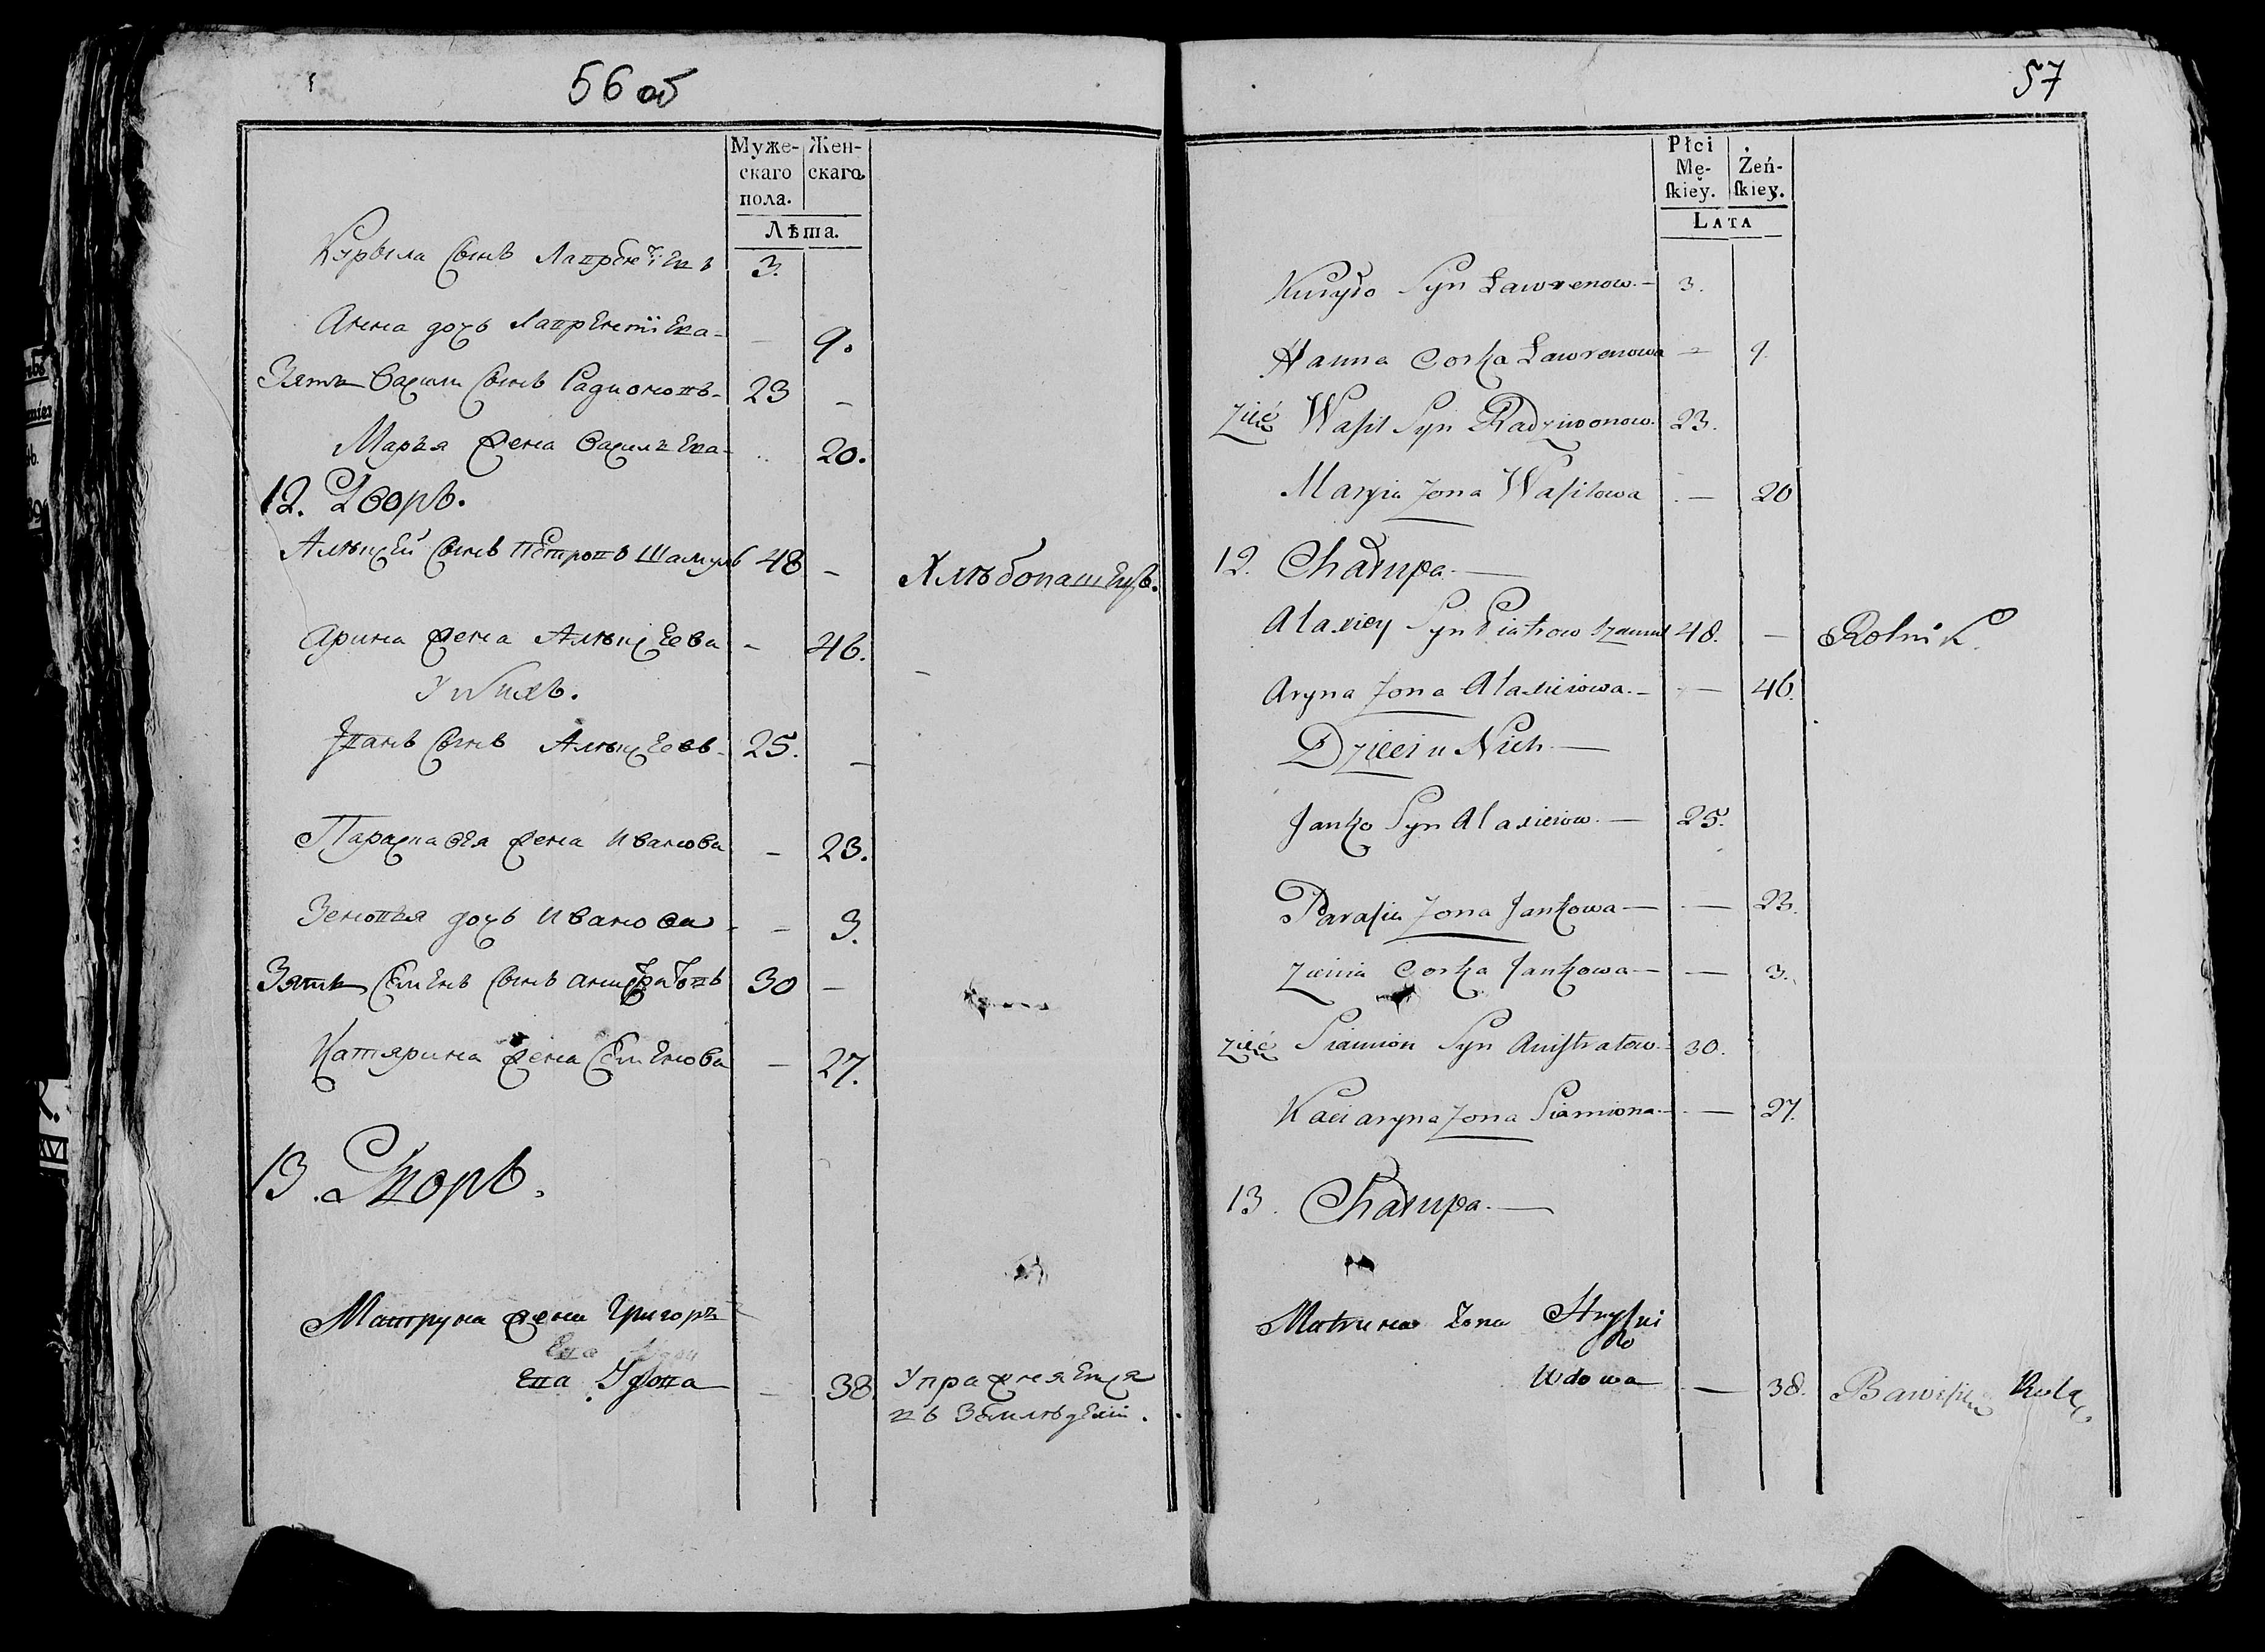 56 об
Муже-
скаго
пола.
Жен-
скаго.
Лѣта.
Кэрыла сынъ Лаврентіевъ 3.
Анна дочь Лаврентіева - — 9.
Зять Васили сынъ Радионовъ - 23 —
Марья жена Васильева - .. 20.
12. Дворъ.
Алѣксѣй сынъ Петровъ Шамулъ 48 — Хлѣбопашецъ.
Арина жена Алѣксеева — 46. —
У нихъ.
Іванъ сынъ Алѣксеевъ - 25. —
Параскавея жена Иванова — 23.
Зеновья дочь Иванова - — 3.
Зять Семенъ сынъ 30 —
Катярина жена Семенова — 27.
13. Дворъ.
Матруна жена Григорь
ева Удова — 38. Упражняеца
въ Земледели.
57
Płci
Mę-
ſkiey.
Żeń-
ſkiey.
LATA
Kuryło Syn Lawrenow. — 3.
Hanna Corka Lawrenowa — 9.
Zięć Waſil Syn Radziwonow. 23.
Maryia Zona Waſilowa . — 20
12. Chałupa. —
Alaxiey Syn Piatrow Szamul 48. — Rolnik.
Aryna Zona Alaxieiowa. — — 46.
Dzieci u Nich —
Janko Syn Alaxieiow. — 25.
Paraſia Zona Jankowa — — 23.
Zienia Corka Jankowa — — 3.
Zięć Siamion Syn Aniſtratow. — 30.
Kaciaryna Zona Siamiona. — — 27.
13. Chałupa. —
Matruna Zona
Udowa — 38. Bawiſię Rolą